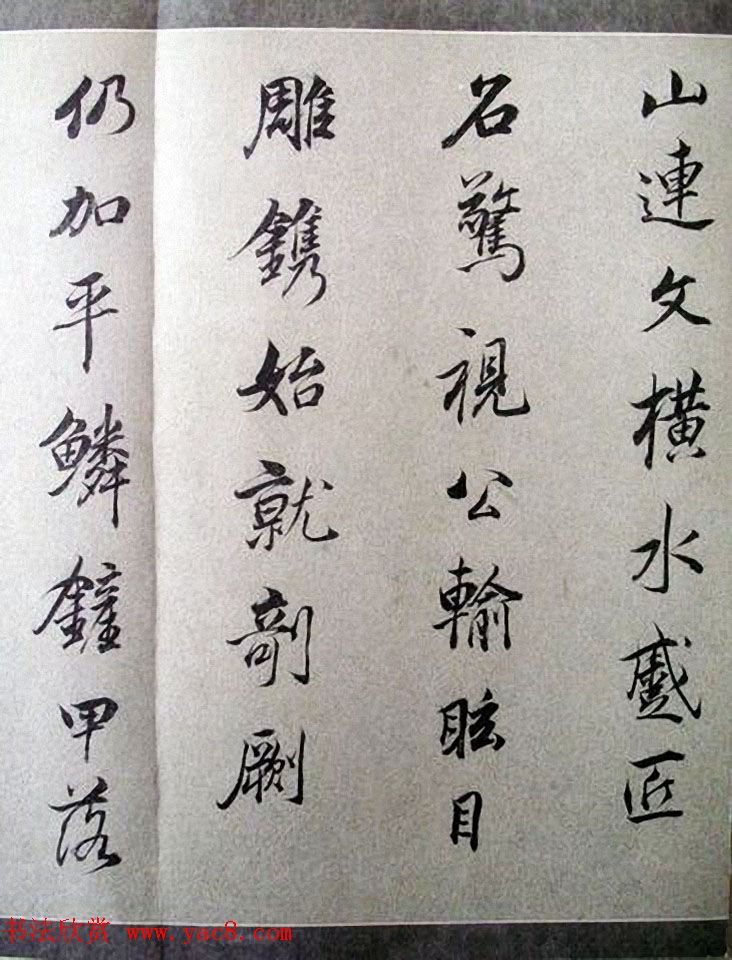 山連文橫水蹙匠
石驚視公輸眩目
雕鐫始就剞劂
仍加平鱗鏟甲落
书法欣赏 www.yac8.com